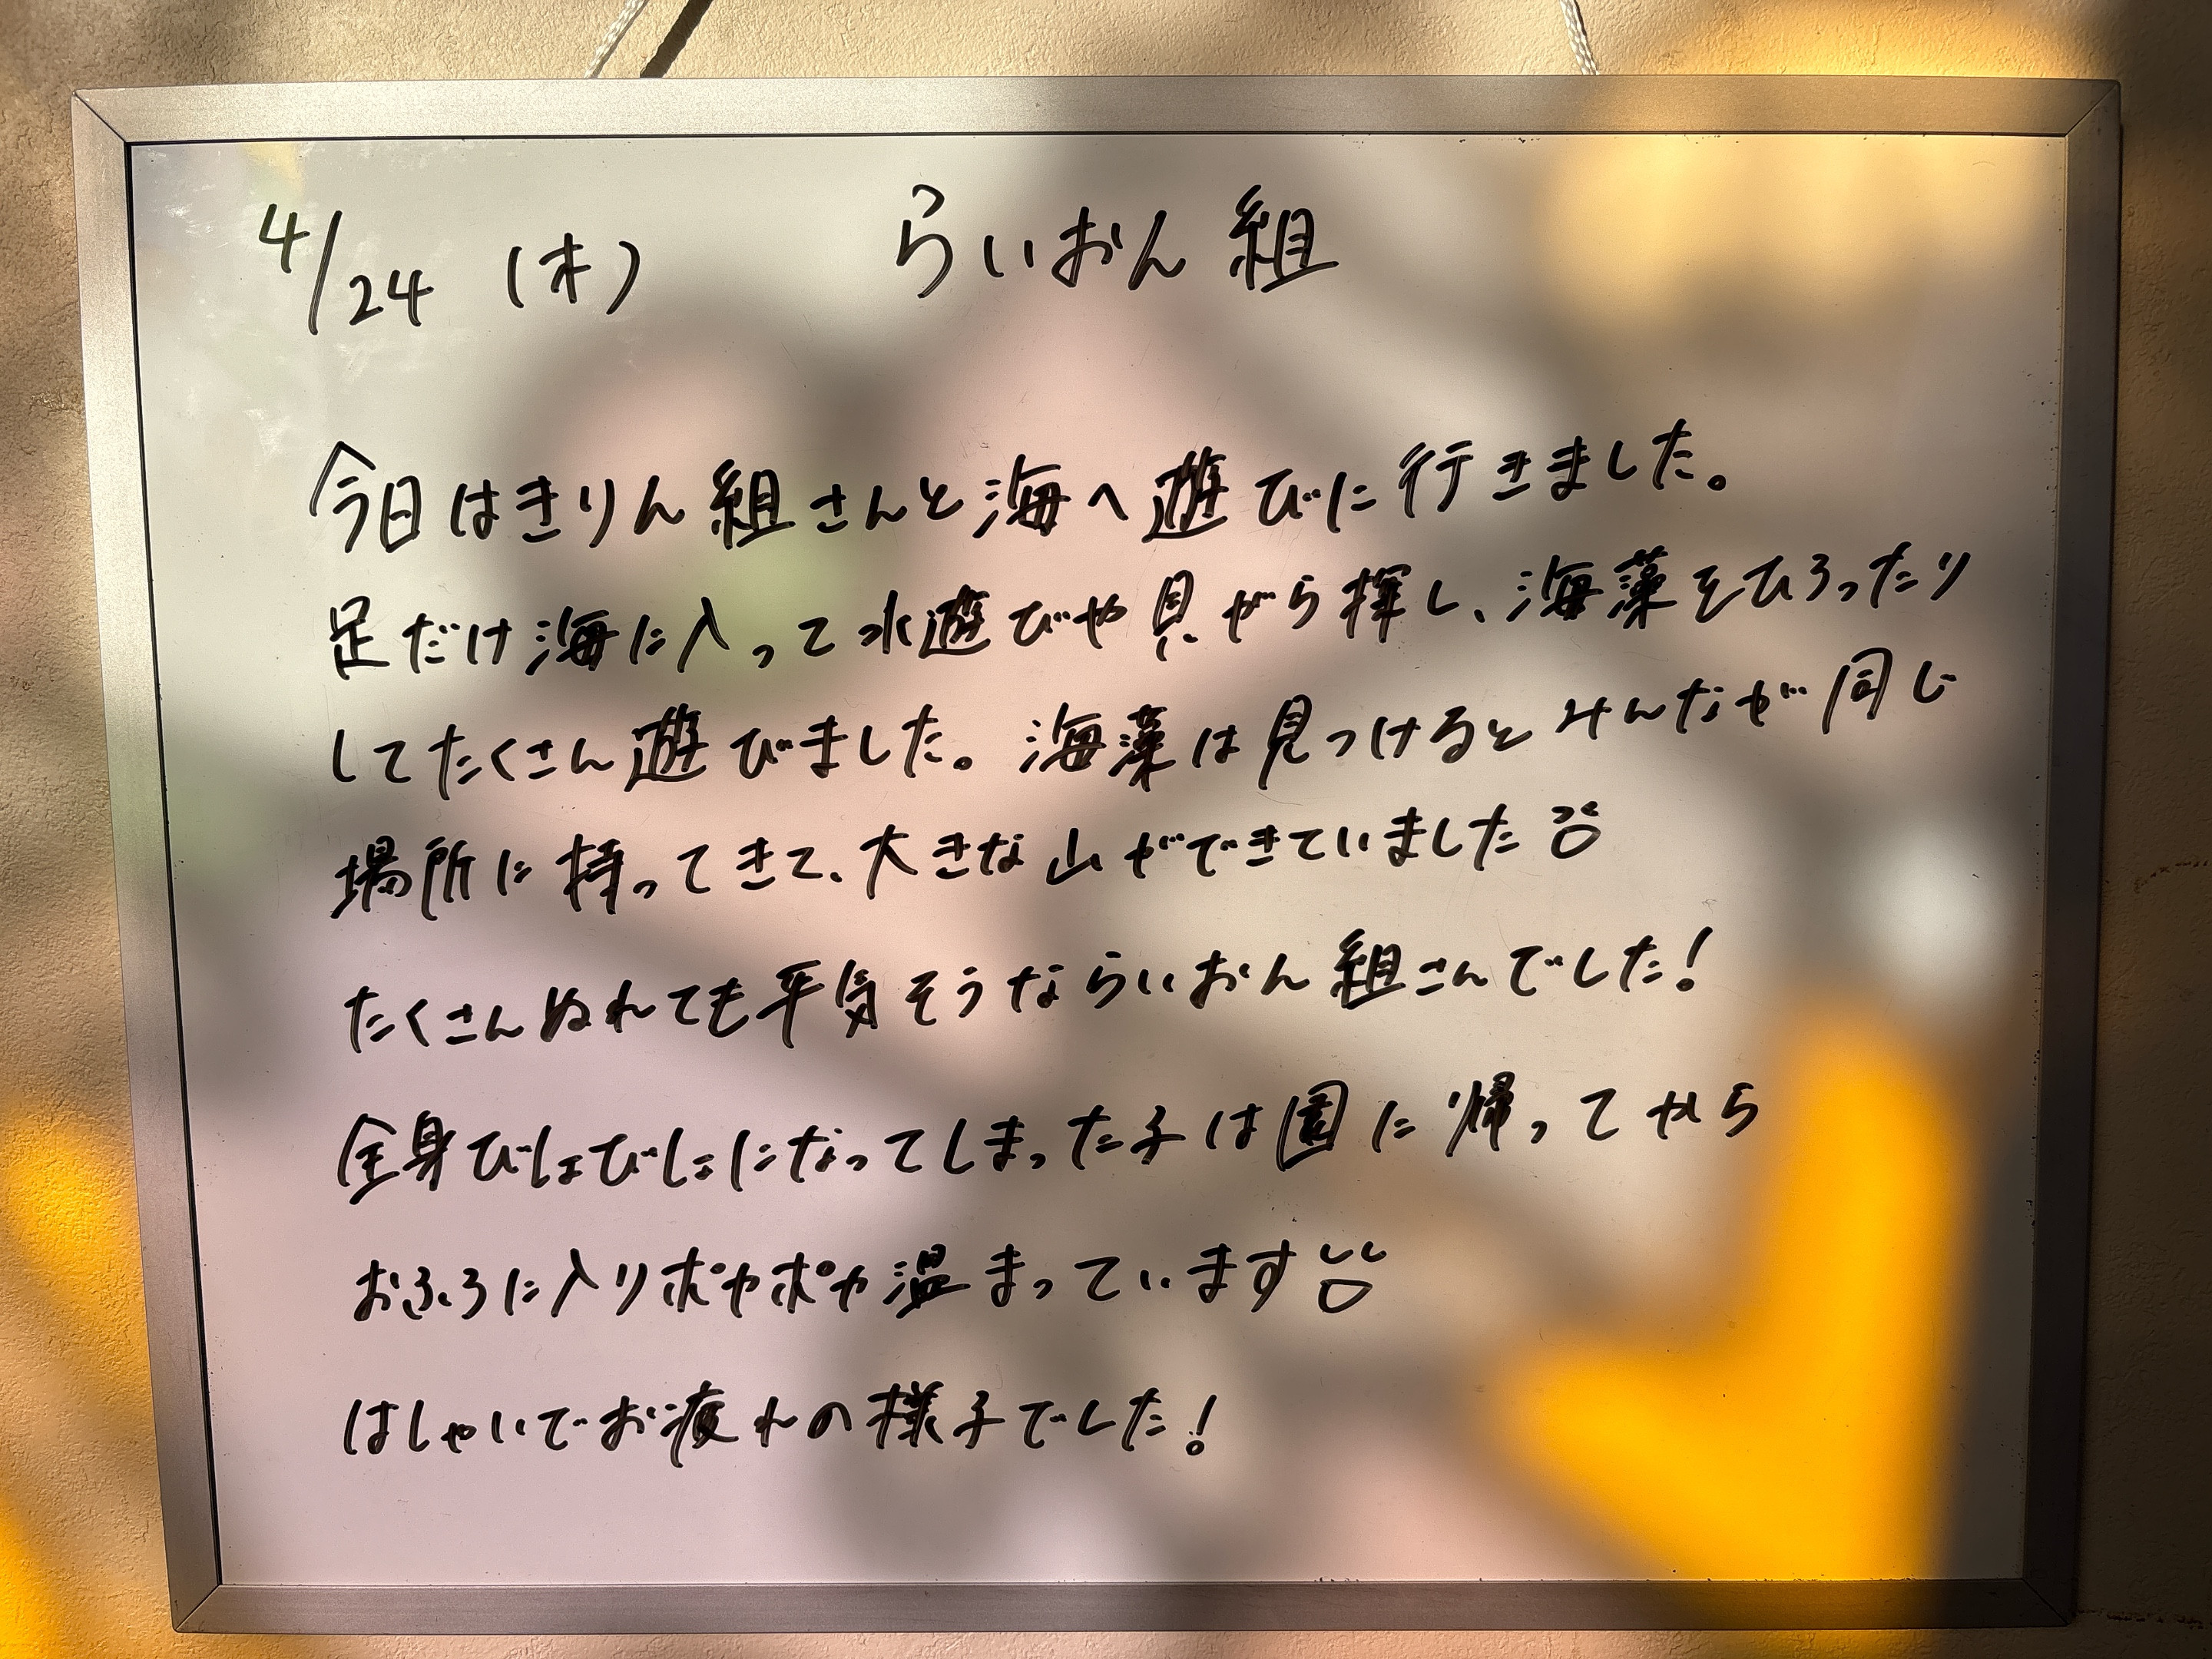 4/24 (木) らいおん組
今日はきりん組さんと海へ遊びに行きました。
足だけ海に入って水遊びや貝がら探し、海藻をひろったり
してたくさん遊びました。海藻は見つけるとみんなが同じ
場所に持ってきて、大きな山ができていました
たくさんぬれても平気そうならいおん組さんでした!
全身びしょびしょになってしまった子は園に帰ってから
おふろに入りポカポカ温まっています
はしゃいでお疲れの様子でした!